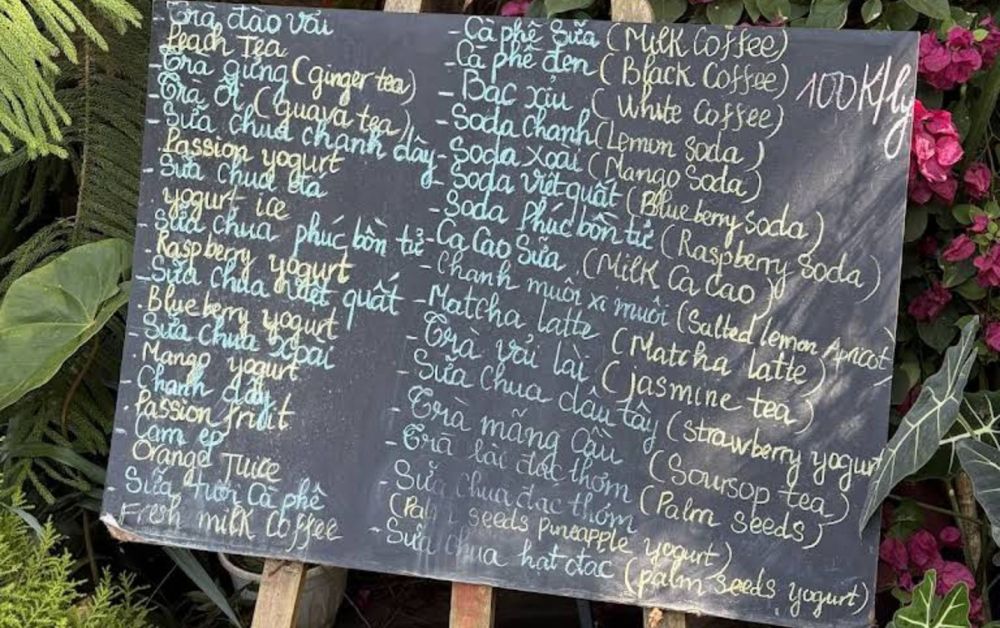 Trà đào vải
Peach Tea
- Trà gừng (ginger tea)
- Trà ổi (Guava tea)
- Sữa chua chanh dây
Passion yogurt
- Sữa chua đá
yogurt ice
- Sữa chua phúc bồn tử
Raspberry yogurt
- Sữa chua việt quất
Blueberry yogurt
- Sữa chua xoài
Mango yogurt
- Chanh dây
Passion fruit
- Cam ép
Orange Juice
- Sữa tươi cà phê
Fresh milk Coffee
- Cà phê Sữa (Milk Coffee)
- Cà phê đen (Black Coffee)
- Bạc xỉu (White Coffee)
- Soda chanh (Lemon Soda)
- Soda xoài (Mango Soda)
- Soda việt quất (Blueberry Soda)
- Soda Phúc bồn tử (Raspberry Soda)
- Ca Cao Sữa (Milk Ca Cao)
- Chanh muối xí muội (Salted lemon Apricot)
- Matcha latte (Matcha latte)
- Trà vải lài (Jasmine tea)
- Sữa chua dâu tây (Strawberry yogurt)
- Trà mãng cầu (Soursop tea)
- Trà lài đác thơm (Palm seeds)
- Sữa chua đác thơm
(Palm seeds pineapple yogurt)
- Sữa chua hạt đác (palm seeds yogurt)
100K/ly